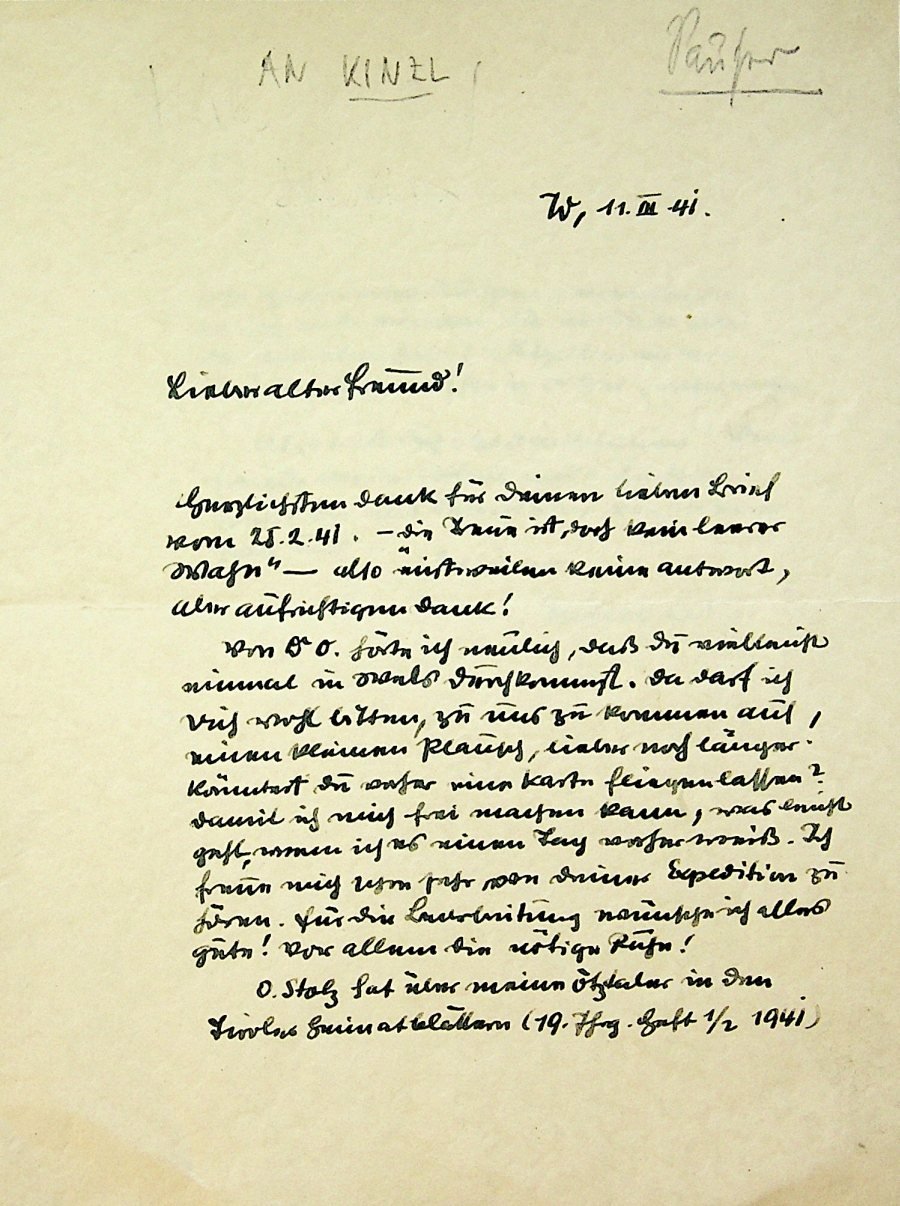 AN KINZL
Paufer
W, 11. III 41.
Lieber alter Freund!
Herzlichsten Dank für Deinen lieben Brief
vom 28.2.41. – die Treue ist „doch kein leerer
Wahn“ — also einstweilen keine Antwort,
aber aufrichtigen Dank!
Von Dr O. hörte ich neulich, daß Du vielleicht
einmal in Wels durchkommst. Da darf ich
Dich wohl bitten, zu uns zu kommen auf,
einen kleinen Plausch, lieber noch länger.
Könntest Du vorher eine Karte fliegen lassen?
damit ich mich frei machen kann, was leicht
geht, wenn ich es einen Tag vorher weiß. Ich
freue mich schon sehr von Deiner Expedition zu
hören. Für die Bearbeitung wünsche ich alles
gute! Vor allem die nötige Ruhe!
O. Stolz hat über meine Ötztaler in den
Tiroler Heimatblättern (19. Jhrg. Heft 1/2 1941)